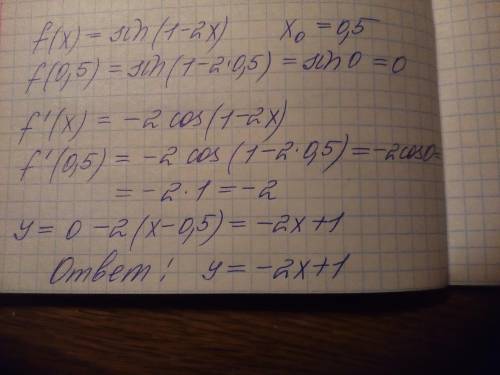 f(x) = sin(1-2x) x₀ = 0,5
f(0,5) = sin(1-2·0,5) = sin0 = 0
f'(x) = -2 cos(1-2x)
f'(0,5) = -2 cos(1-2·0,5) = -2cos0=
= -2·1 = -2
y = 0 -2(x-0,5) = -2x+1
Ответ: y = -2x+1